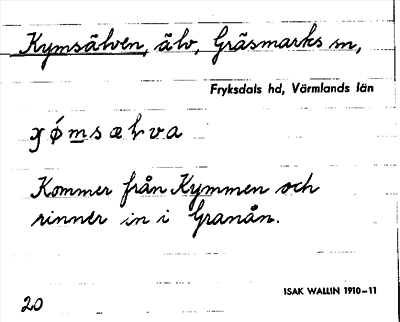 Kymsälven, älv, Gräsmarks sn,
Fryksdals hd, Värmlands län
Kommer från Kymmen och
rinner in i Granån.
ISAK WALLIN 1910–11
20